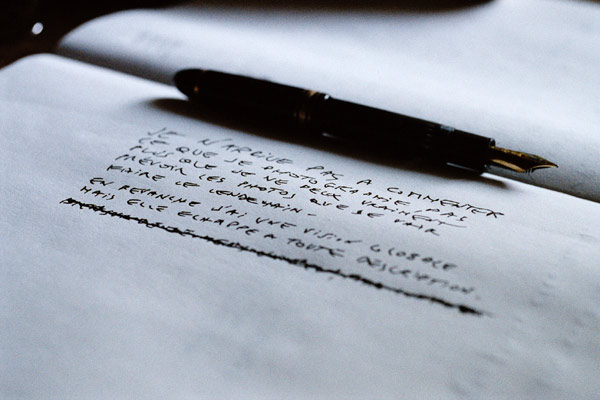 JE N'ARRIVE PAS A COMMENTER
CE QUE JE PHOTOGRAPHIE PAS
PLUS QUE JE NE PEUX VRAIMENT
PREVOIR LES PHOTOS QUE JE VAIS
FAIRE LE LENDEMAIN-
EN REVANCHE J'AI UNE VISION GLOBALE
MAIS ELLE ECHAPPE A TOUTE DESCRIPTION.